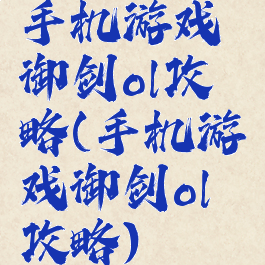 手机游戏
御剑ol攻
略(手机游
戏御剑ol
攻略)